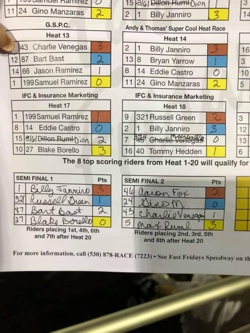 199 Samuel Ramirez 0
11 24 Gino Manzaras 2
15 86 Dillon Rumi Dion
2 1 Billy Janniro 3
G.S.P.C.
Andy & Thomas' Super Cool Heat Race
Heat 13
Heat 14
43 Charlie Venegas 3
2 1 Billy Janniro 3
12 87 Bart Bast 2
13 8 Bryan Yarrow 1
14 66 Jason Ramirez 1
8 14 Eddie Castro 0
1 199 Samuel Ramirez 0
11 24 Gino Manzaras 2
IFC & Insurance Marketing
IFC & Insurance Marketing
Heat 17
Heat 18
1 199 Samuel Ramirez 1
9 321 Russell Green 2
8 14 Eddie Castro 0
2 1 Billy Janniro 3
15 86 Dillon Rumi Dion 2
43 Charlie Venegas 0
10 27 Blake Borello 3
16 40 Tommy Hedden
The 8 top scoring riders from Heat 1-20 will qualify for
SEMI FINAL 1 Pts
SEMI FINAL 2 Pts
1 Billy Janniro 3
46 Aaron Fox 2
321 Russell Green 1
24 Gino M 0
87 Bart Bast 2
43 Charlie Venegas 1
27 Blake Borello 0
5 Max Ruml 3
Riders placing 1st, 4th, 6th
and 7th after Heat 20
Riders placing 2nd, 3rd, 5th
and 8th after Heat 20
For more information, call (530) 878-RACE (7223) • See Fast Fridays Speedway on th